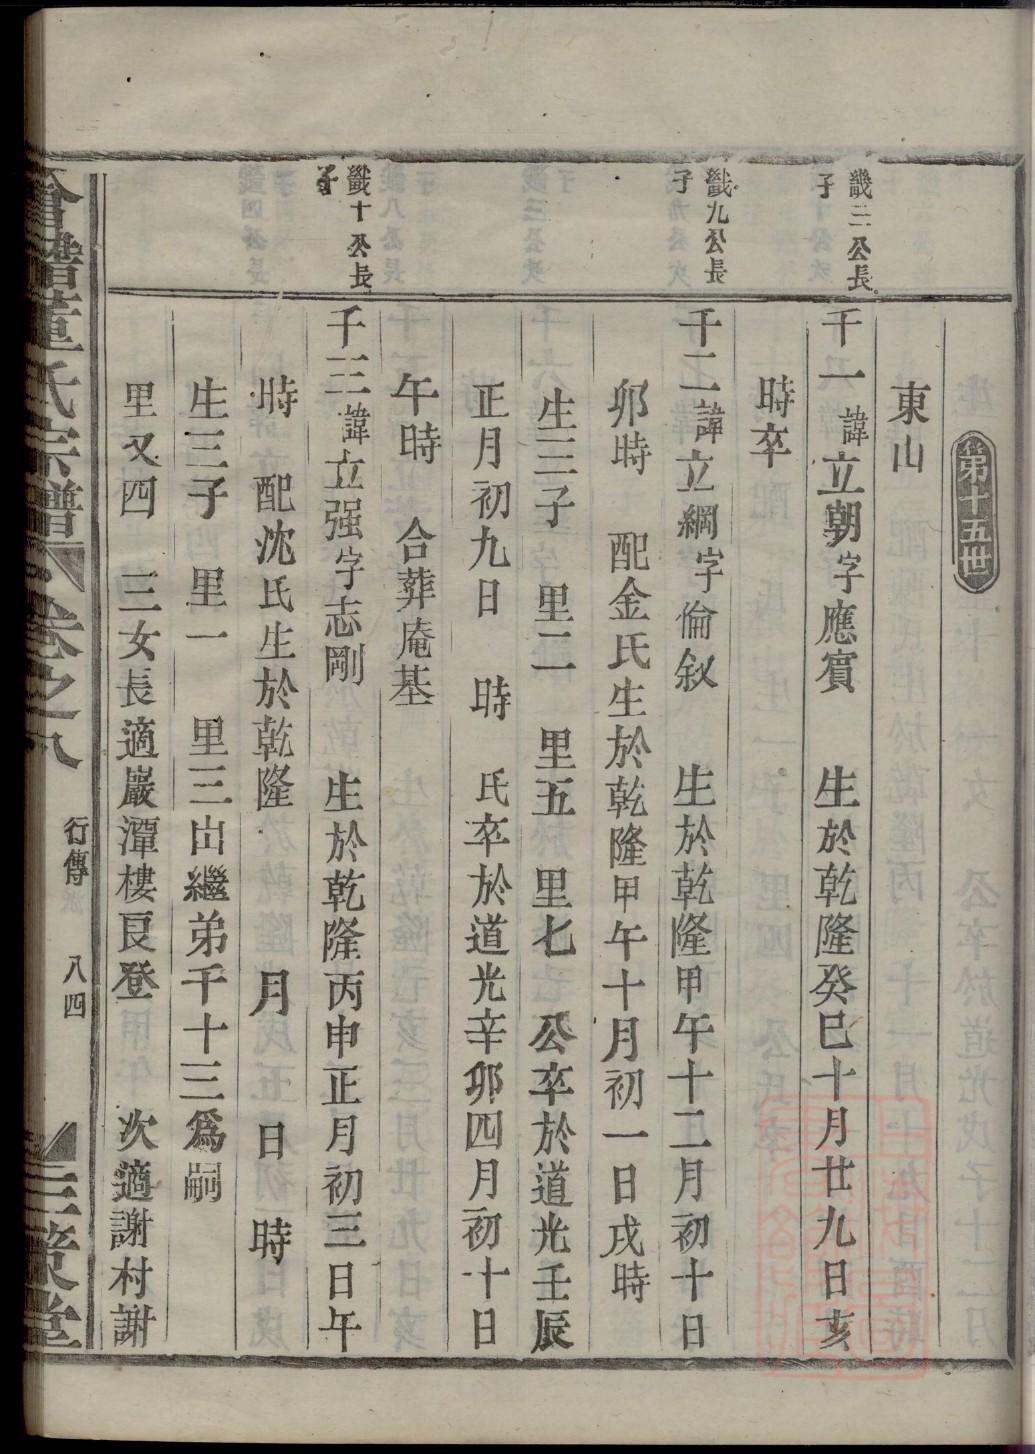 第十五世
東山
鐖三公長子
千一諱立朝字應賓 生於乾隆癸巳十月廿九日亥
時卒
鐖九公長子
千二諱立綱字倫叙 生於乾隆甲午十二月初十日
卯時 配金氏生於乾隆甲午十月初一日戌時
生三子 里二 里五 里七 公卒於道光壬辰
正月初九日 時 氏卒於道光辛卯四月初十日
午時 合葬庵基
鐖十公長子
千三諱立强字志剛 生於乾隆丙申正月初三日午
時 配沈氏生於乾隆 月 日 時
生三子 里一 里三出繼弟千十三爲嗣
里又四 三女長適巖潭樓良登 次適謝村謝
董氏宗譜 卷之八 行傳 八四 三策堂